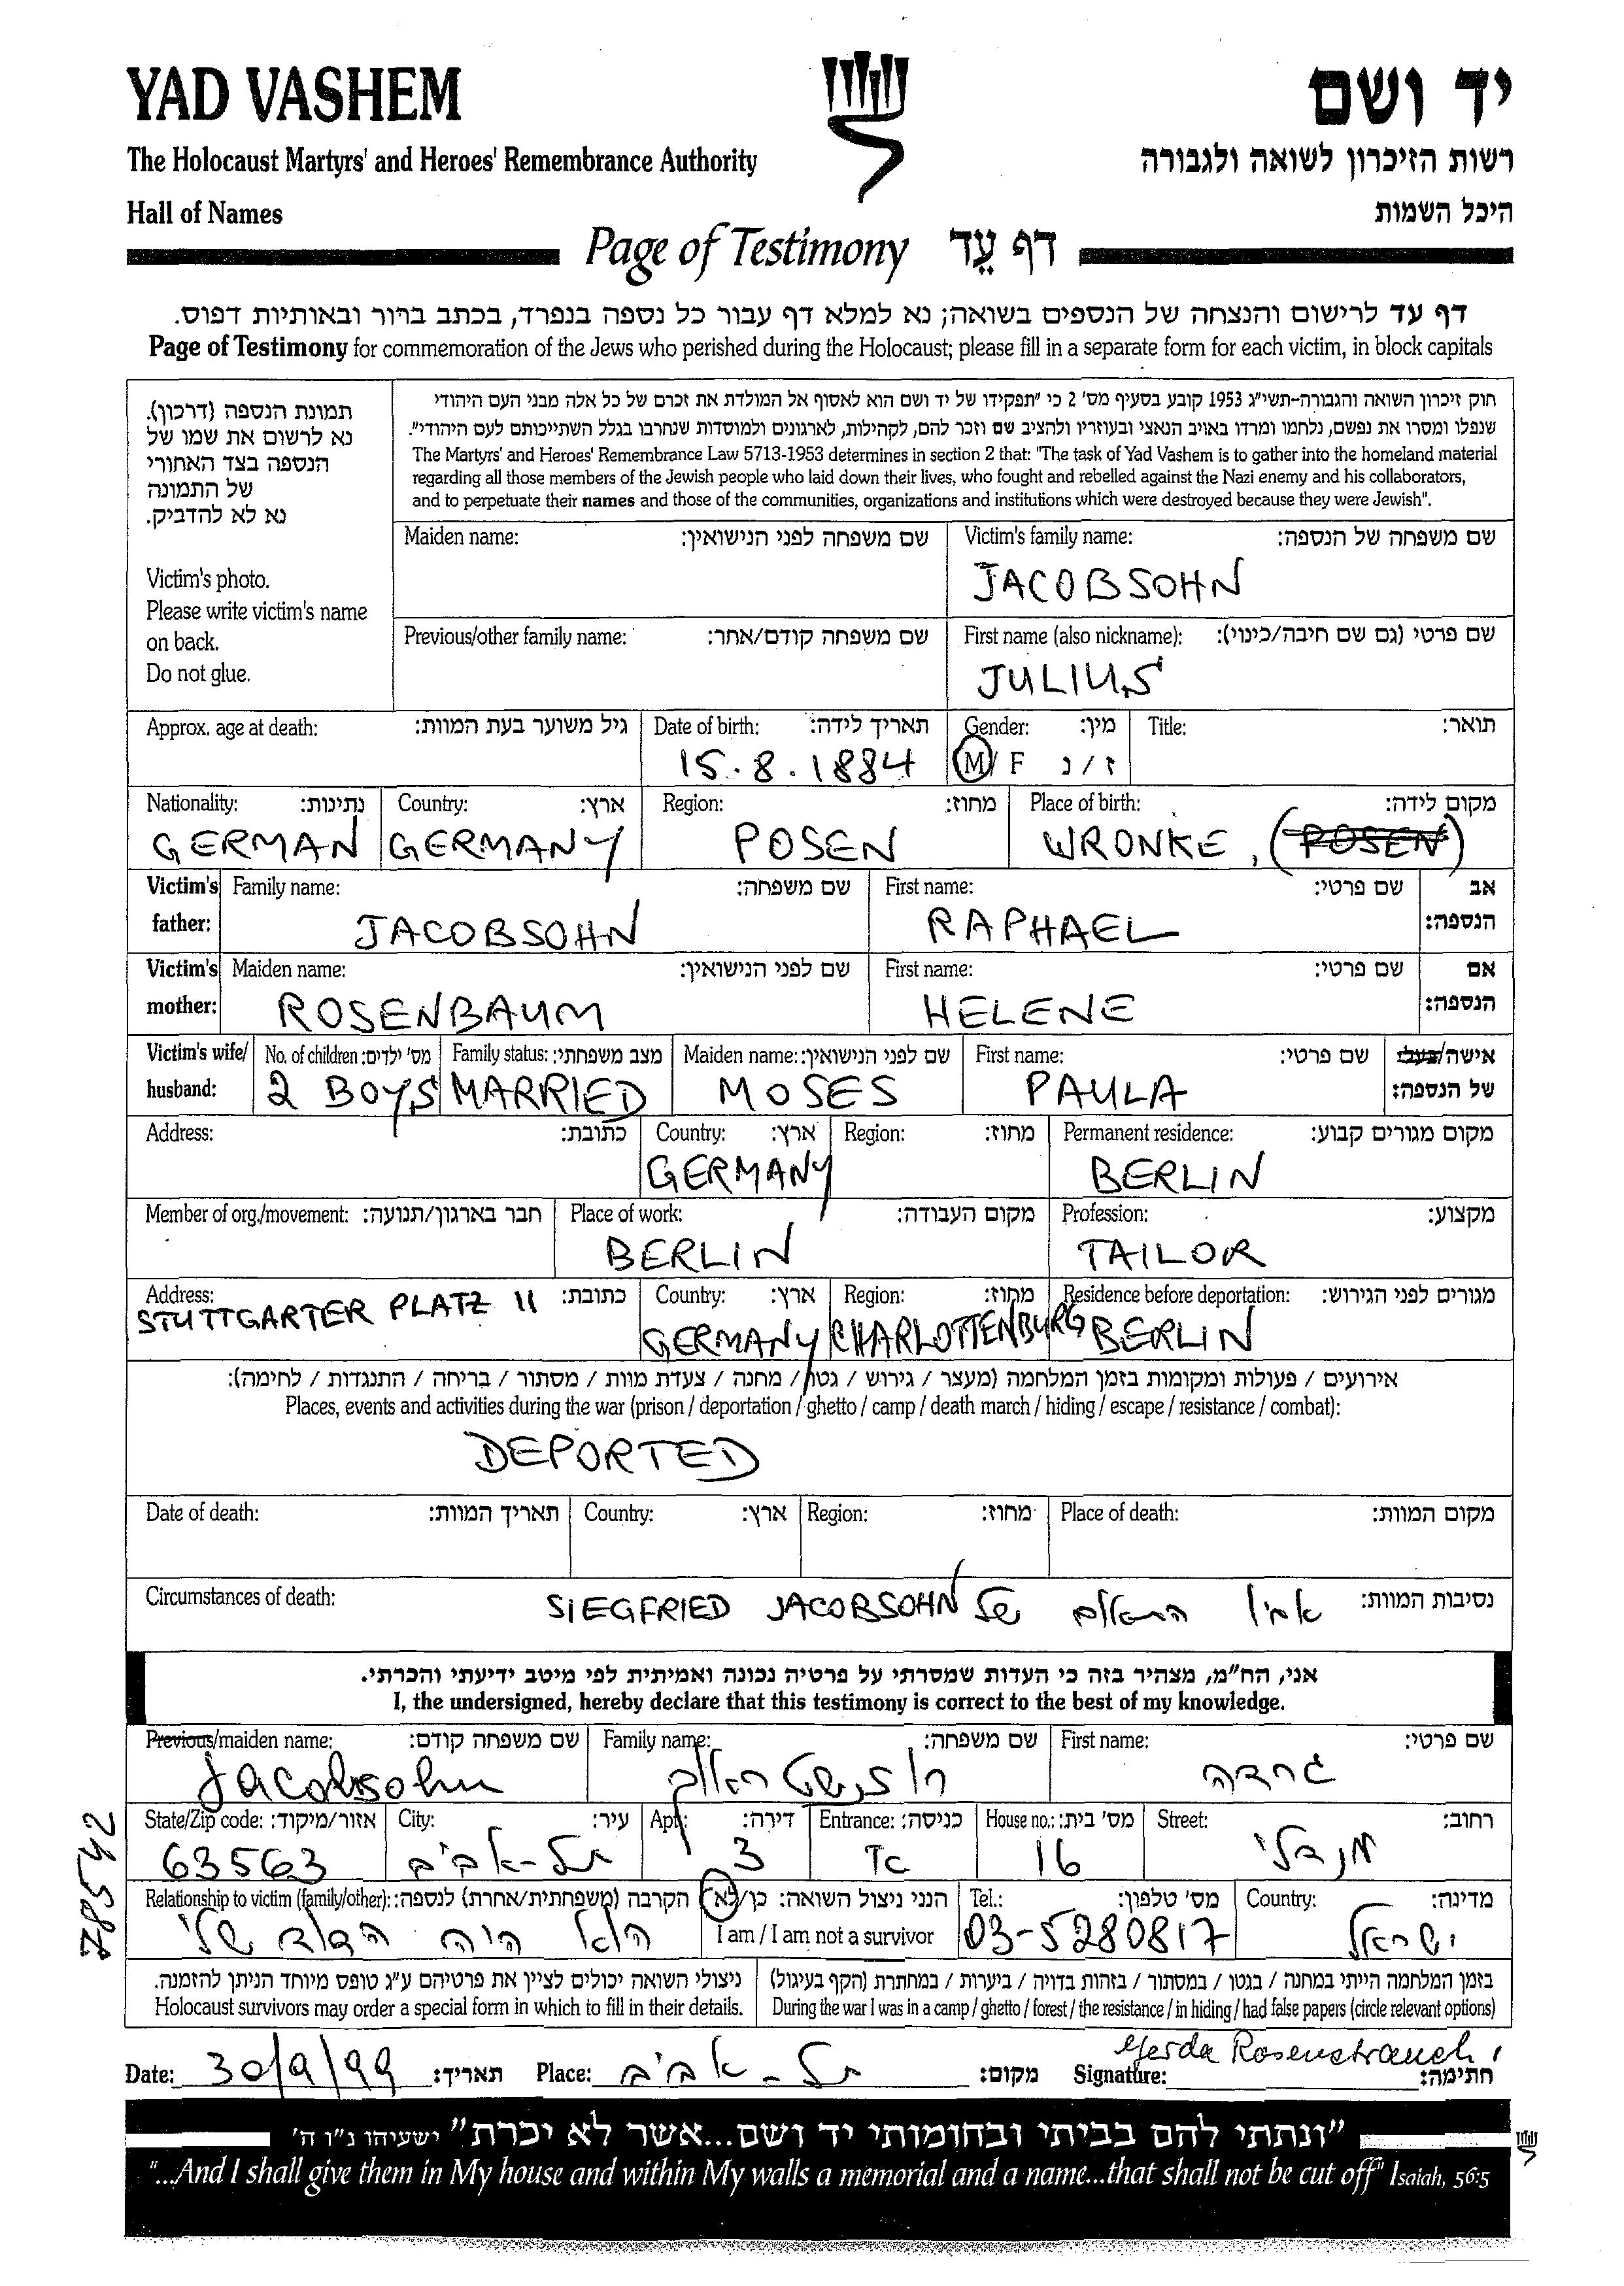 YAD VASHEM
יד ושם
The Holocaust Martyrs' and Heroes' Remembrance Authority
רשות הזיכרון לשואה ולגבורה
Hall of Names
היכל השמות
Page of Testimony דף עֵד
דף עד לרישום והנצחה של הנספים בשואה; נא למלא דף עבור כל נספה בנפרד, בכתב ברור ובאותיות דפוס.
Page of Testimony for commemoration of the Jews who perished during the Holocaust; please fill in a separate form for each victim, in block capitals
תמונת הנספה (דרכון).
נא לרשום את שמו של
הנספה בצד האחורי
של התמונה
נא לא להדביק.
Victim's photo.
Please write victim's name
on back.
Do not glue.
חוק זיכרון השואה והגבורה-תשי"ג 1953 קובע בסעיף מס' 2 כי "תפקידו של יד ושם הוא לאסוף אל המולדת את זכרם של כל אלה מבני העם היהודי
שנפלו ומסרו את נפשם, נלחמו ומרדו באויב הנאצי ובעוזריו ולהציב שם וזכר להם, לקהילות, לארגונים ולמוסדות שנחרבו בגלל השתייכותם לעם היהודי".
The Martyrs' and Heroes' Remembrance Law 5713-1953 determines in section 2 that: "The task of Yad Vashem is to gather into the homeland material
regarding all those members of the Jewish people who laid down their lives, who fought and rebelled against the Nazi enemy and his collaborators,
and to perpetuate their names and those of the communities, organizations and institutions which were destroyed because they were Jewish".
Maiden name: שם משפחה לפני הנישואין:
Victim's family name: שם משפחה של הנספה:
JACOBSOHN
Previous/other family name: שם משפחה קודם/אחר:
First name (also nickname): שם פרטי (גם שם חיבה/כינוי):
JULIUS
Approx. age at death: גיל משוער בעת המוות: Date of birth: תאריך לידה: Gender: מין: Title: תואר:
15.8.1884 M/ F ז / נ
Nationality: נתינות: Country: ארץ: Region: מחוז: Place of birth: מקום לידה:
GERMAN GERMANY POSEN WRONKE, (POSEN)
Victim's father: Family name: שם משפחה: First name: שם פרטי: אב הנספה:
JACOBSOHN RAPHAEL
Victim's mother: Maiden name: שם לפני הנישואין: First name: שם פרטי: אם הנספה:
ROSENBAUM HELENE
Victim's wife/ husband: No. of children: מס' ילדים: Family status: מצב משפחתי: Maiden name: שם לפני הנישואין: First name: שם פרטי: אישה/בעלו של הנספה:
2 BOYS MARRIED MOSES PAULA
Address: כתובת: Country: ארץ: Region: מחוז: Permanent residence: מקום מגורים קבוע:
GERMANY BERLIN
Member of org./movement: חבר בארגון/תנועה: Place of work: מקום העבודה: Profession: מקצוע:
BERLIN TAILOR
Address: כתובת: Country: ארץ: Region: מחוז: Residence before deportation: מגורים לפני הגירוש:
STUTTGARTER PLATZ 11 GERMANY CHARLOTTENBURG BERLIN
אירועים / פעולות ומקומות בזמן המלחמה (מעצר / גירוש / גטו / מחנה / צעדת מוות / מסתור / בריחה / התנגדות / לחימה):
Places, events and activities during the war (prison / deportation / ghetto / camp / death march / hiding / escape / resistance / combat):
DEPORTED
Date of death: תאריך המוות: Country: ארץ: Region: מחוז: Place of death: מקום המוות:
Circumstances of death: נסיבות המוות:
של SIEGFRIED JACOBSOHN
אני, הח"מ, מצהיר בזה כי העדות שמסרתי על פרטיה נכונה ואמיתית לפי מיטב ידיעתי והכרתי.
I, the undersigned, hereby declare that this testimony is correct to the best of my knowledge.
Previous/maiden name: שם משפחה קודם: Family name: שם משפחה: First name: שם פרטי:
Jacobsohn רוזנשטראוך גרדה
State/Zip code: אזור/מיקוד: City: עיר: Apt.: דירה: Entrance: כניסה: House no.: מס' בית: Street: רחוב:
63563 תל-אביב 3 16 מנדלי
Relationship to victim (family/other): הקרבה (משפחתית/אחרת) לנספה: הנני ניצול השואה: כן/לא Tel.: מס' טלפון: Country: מדינה:
הוא היה הדוד שלי I am / I am not a survivor 03-5280817 ישראל
ניצולי השואה יכולים לציין את פרטיהם ע"ג טופס מיוחד הניתן להזמנה.
Holocaust survivors may order a special form in which to fill in their details.
בזמן המלחמה הייתי במחנה / בגטו / במסתור / בזהות בדויה / ביערות / במחתרת (הקף בעיגול)
During the war I was in a camp / ghetto / forest / the resistance / in hiding / had false papers (circle relevant options)
Date: 30/9/99 תאריך: Place: תל-אביב מקום: Signature: Gerda Rosenstrauch חתימה:
785542
"ונתתי להם בביתי ובחומותי יד ושם...אשר לא יכרת" ישעיהו נ"ו ה'
"...And I shall give them in My house and within My walls a memorial and a name...that shall not be cut off" Isaiah, 56:5